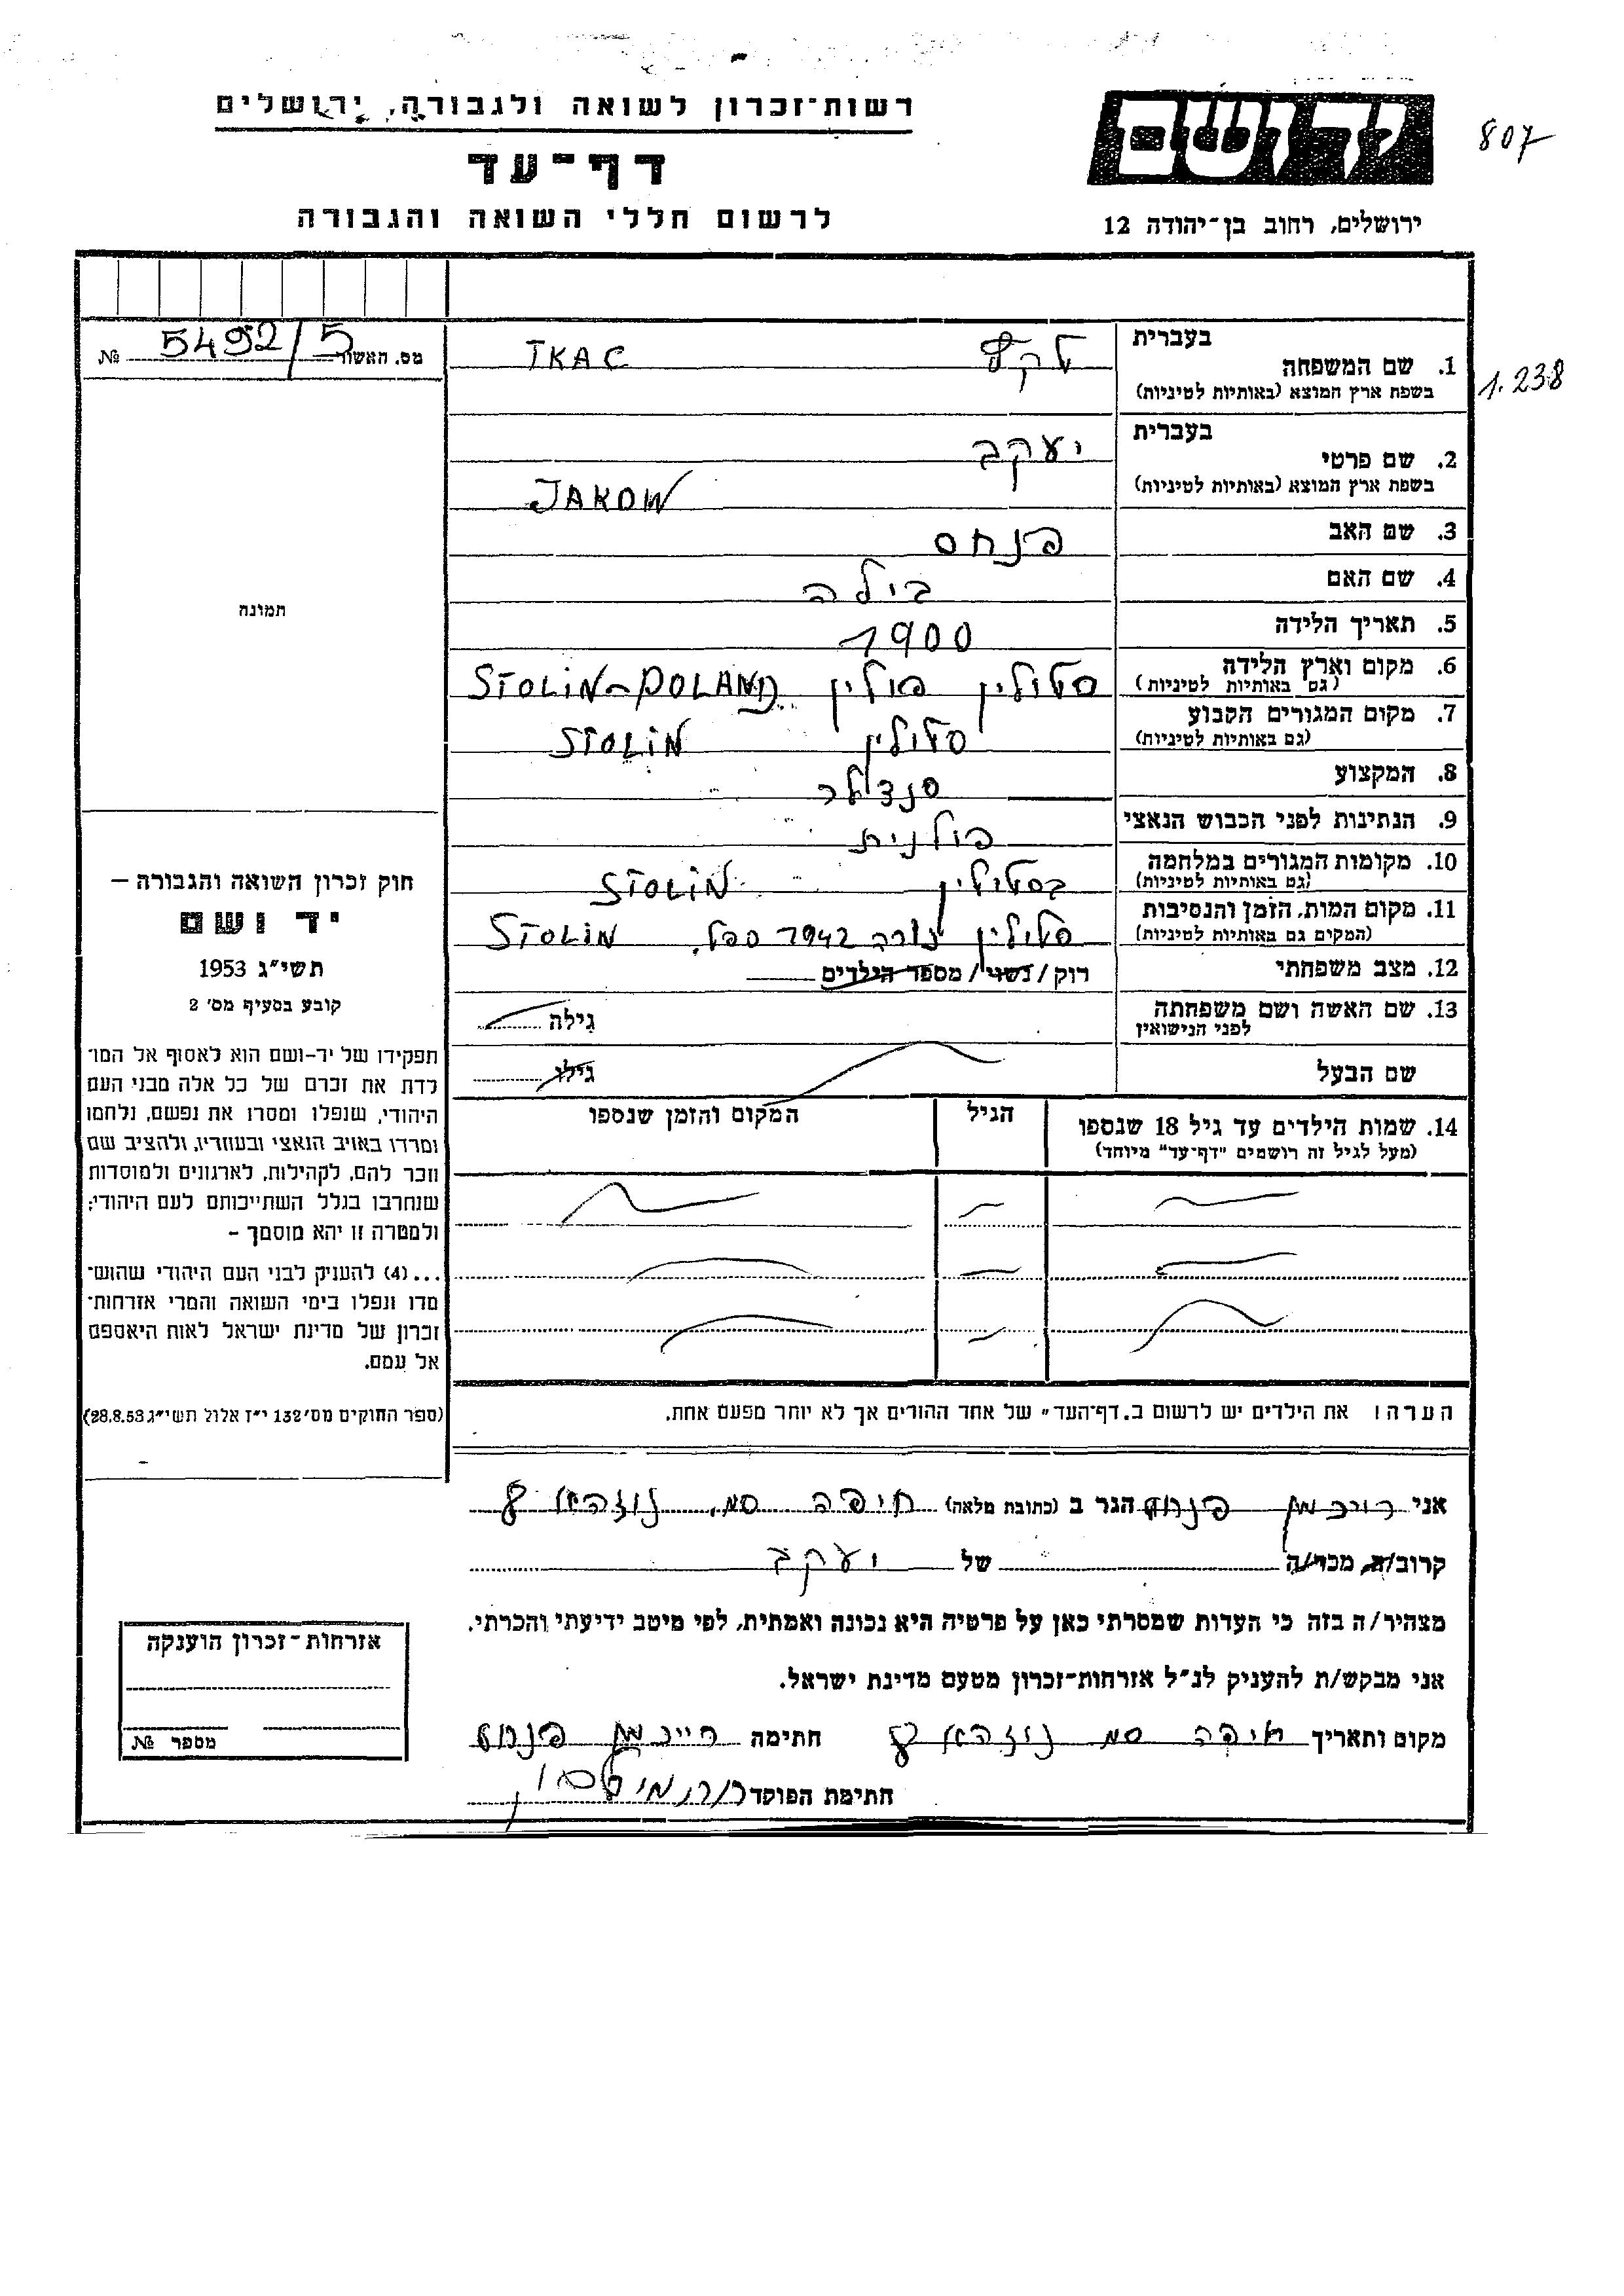 רשות־זכרון לשואה ולגבורה, ירושלים
דף־עד
לרשום חללי השואה והגבורה
ידושם
ירושלים, רחוב בן־יהודה 12
807
מס. האשור 5492/5 №
1.238
בעברית
1. שם המשפחה TKAC
בשפת ארץ המוצא (באותיות לטיניות)
בעברית יעקב
2. שם פרטי
בשפת ארץ המוצא (באותיות לטיניות) JAKOW
3. שם האב פנחס
4. שם האם בילה
5. תאריך הלידה 1900
6. מקום וארץ הלידה סטולין פולין STOLIN-POLAND
(גם באותיות לטיניות)
7. מקום המגורים הקבוע סטולין STOLIN
(גם באותיות לטיניות)
8. המקצוע סנדלר
9. הנתינות לפני הכבוש הנאצי פולנית
10. מקומות המגורים במלחמה בסטולין STOLIN
(גם באותיות לטיניות)
11. מקום המות, הזמן והנסיבות סטולין נורה 1942 ספט. STOLIN
(המקום גם באותיות לטיניות)
12. מצב משפחתי רוק/נשוי/מספר הילדים
13. שם האשה ושם משפחתה גילה
לפני הנישואין
שם הבעל גילו
14. שמות הילדים עד גיל 18 שנספו הגיל המקום והזמן שנספו
(מעל לגיל זה רושמים "דף־עד" מיוחד)
הערה: את הילדים יש לרשום ב„דף־העד" של אחד ההורים אך לא יותר מפעם אחת.
תמונה
חוק זכרון השואה והגבורה —
יד ושם
תשי"ג 1953
קובע בסעיף מס' 2
תפקידו של יד-ושם הוא לאסוף אל המו־
לדת את זכרם של כל אלה מבני העם
היהודי, שנפלו ומסרו את נפשם, נלחמו
ומרדו באויב הנאצי ובעוזריו, ולהציב שם
וזכר להם, לקהילות, לארגונים ולמוסדות
שנחרבו בגלל השתייכותם לעם היהודי;
ולמטרה זו יהא מוסמך –
...(4) להעניק לבני העם היהודי שהוש־
מדו ונפלו בימי השואה והמרי אזרחות־
זכרון של מדינת ישראל לאות היאספם
אל עמם.
(ספר החוקים מס' 132 י"ז אלול תשי"ג 28.8.53)
אני פנחס הגר ב (כתובת מלאה) חיפה
קרוב/ה, מכר/ה של יעקב
מצהיר/ה בזה כי העדות שמסרתי כאן על פרטיה היא נכונה ואמתית, לפי מיטב ידיעתי והכרתי.
אני מבקש/ת להעניק לנ"ל אזרחות־זכרון מטעם מדינת ישראל.
מקום ותאריך חיפה חתימה פנחס
חתימת הפוקד
אזרחות־זכרון הוענקה
מספר №